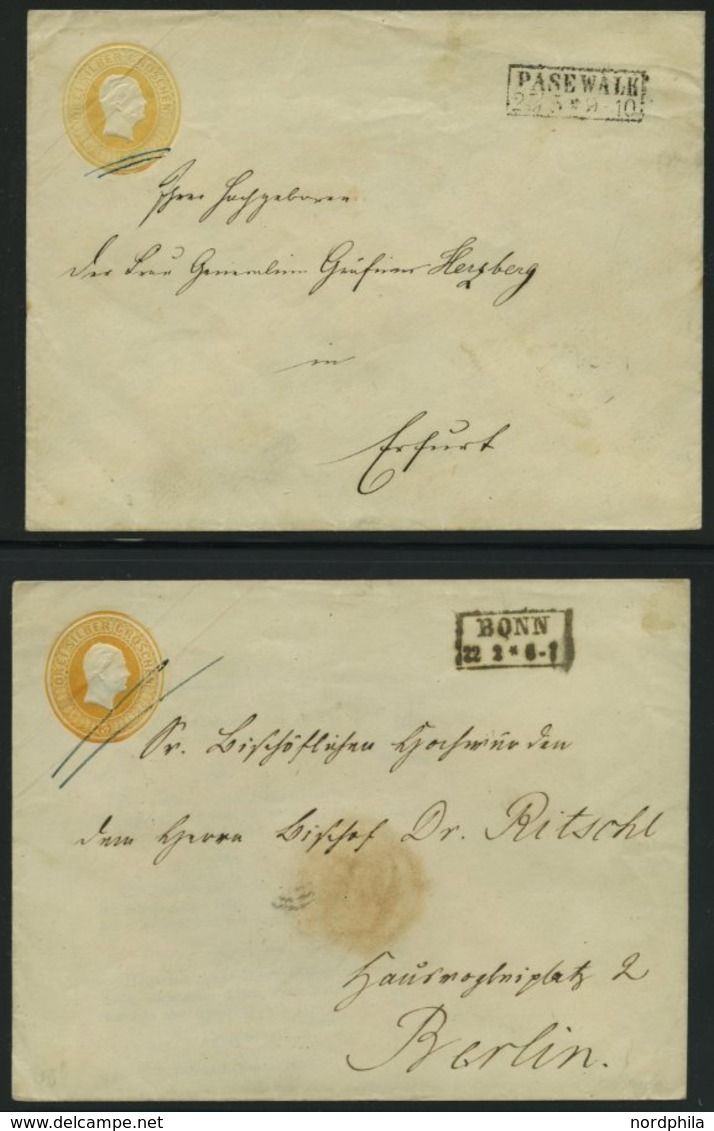 DREI SILBER GROSCHEN
PASEWALK
5 * 9-10
Ihrer Hochgeboren
der Frau Generalin Gräfin Herzberg
in
Erfurt
DREI SILBER GROSCHEN
BONN
22 2 * 6-7
Sr. Bischöflichen Hochwürden
dem Herrn Bischof Dr. Ritschl
Hausvogteiplatz 2
Berlin.
www.delcampe.net
nordphila